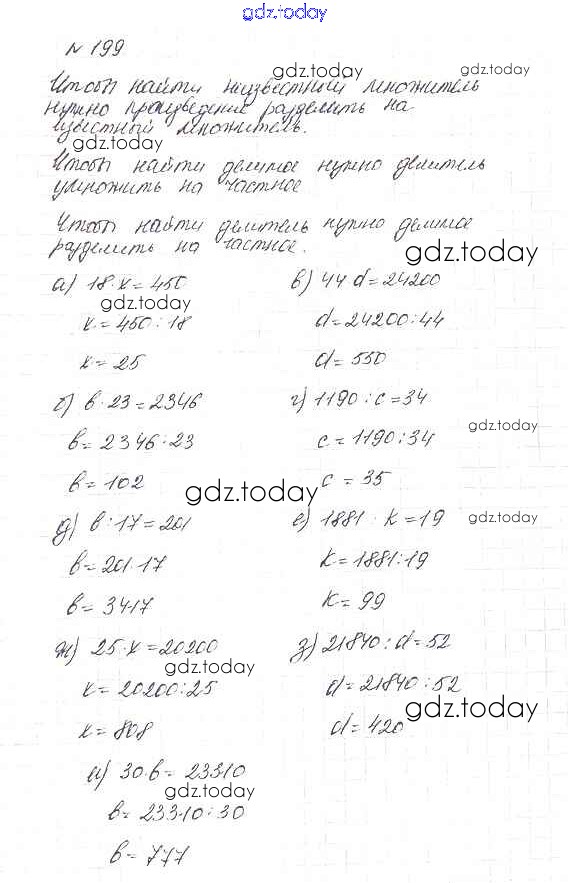 gdz.today
№ 199
Чтобы найти неизвестный множитель
gdz.today gdz.today
нужно произведение разделить на
известный множитель.
gdz.today
Чтобы найти делимое нужно делитель
умножить на частное
Чтобы найти делитель нужно делимое
разделить на частное.
gdz.today
а) 18·x=450
в) 44·d=24200
gdz.today
x=450:18
d=24200:44
x=25
d=550
б) b·23=2346
г) 1190:c=34
gdz.today
b=2346:23
c=1190:34
b=102
c=35
gdz.today
д) b:17=201
е) 1881:k=19
gdz.today
b=201·17
k=1881:19
b=3417
k=99
ж) 25·x=20200
з) 21840:d=52
gdz.today
x=20200:25
d=21840:52
gdz.today
x=808
d=420
и) 30·b=23310
gdz.today
b=23310:30
b=777